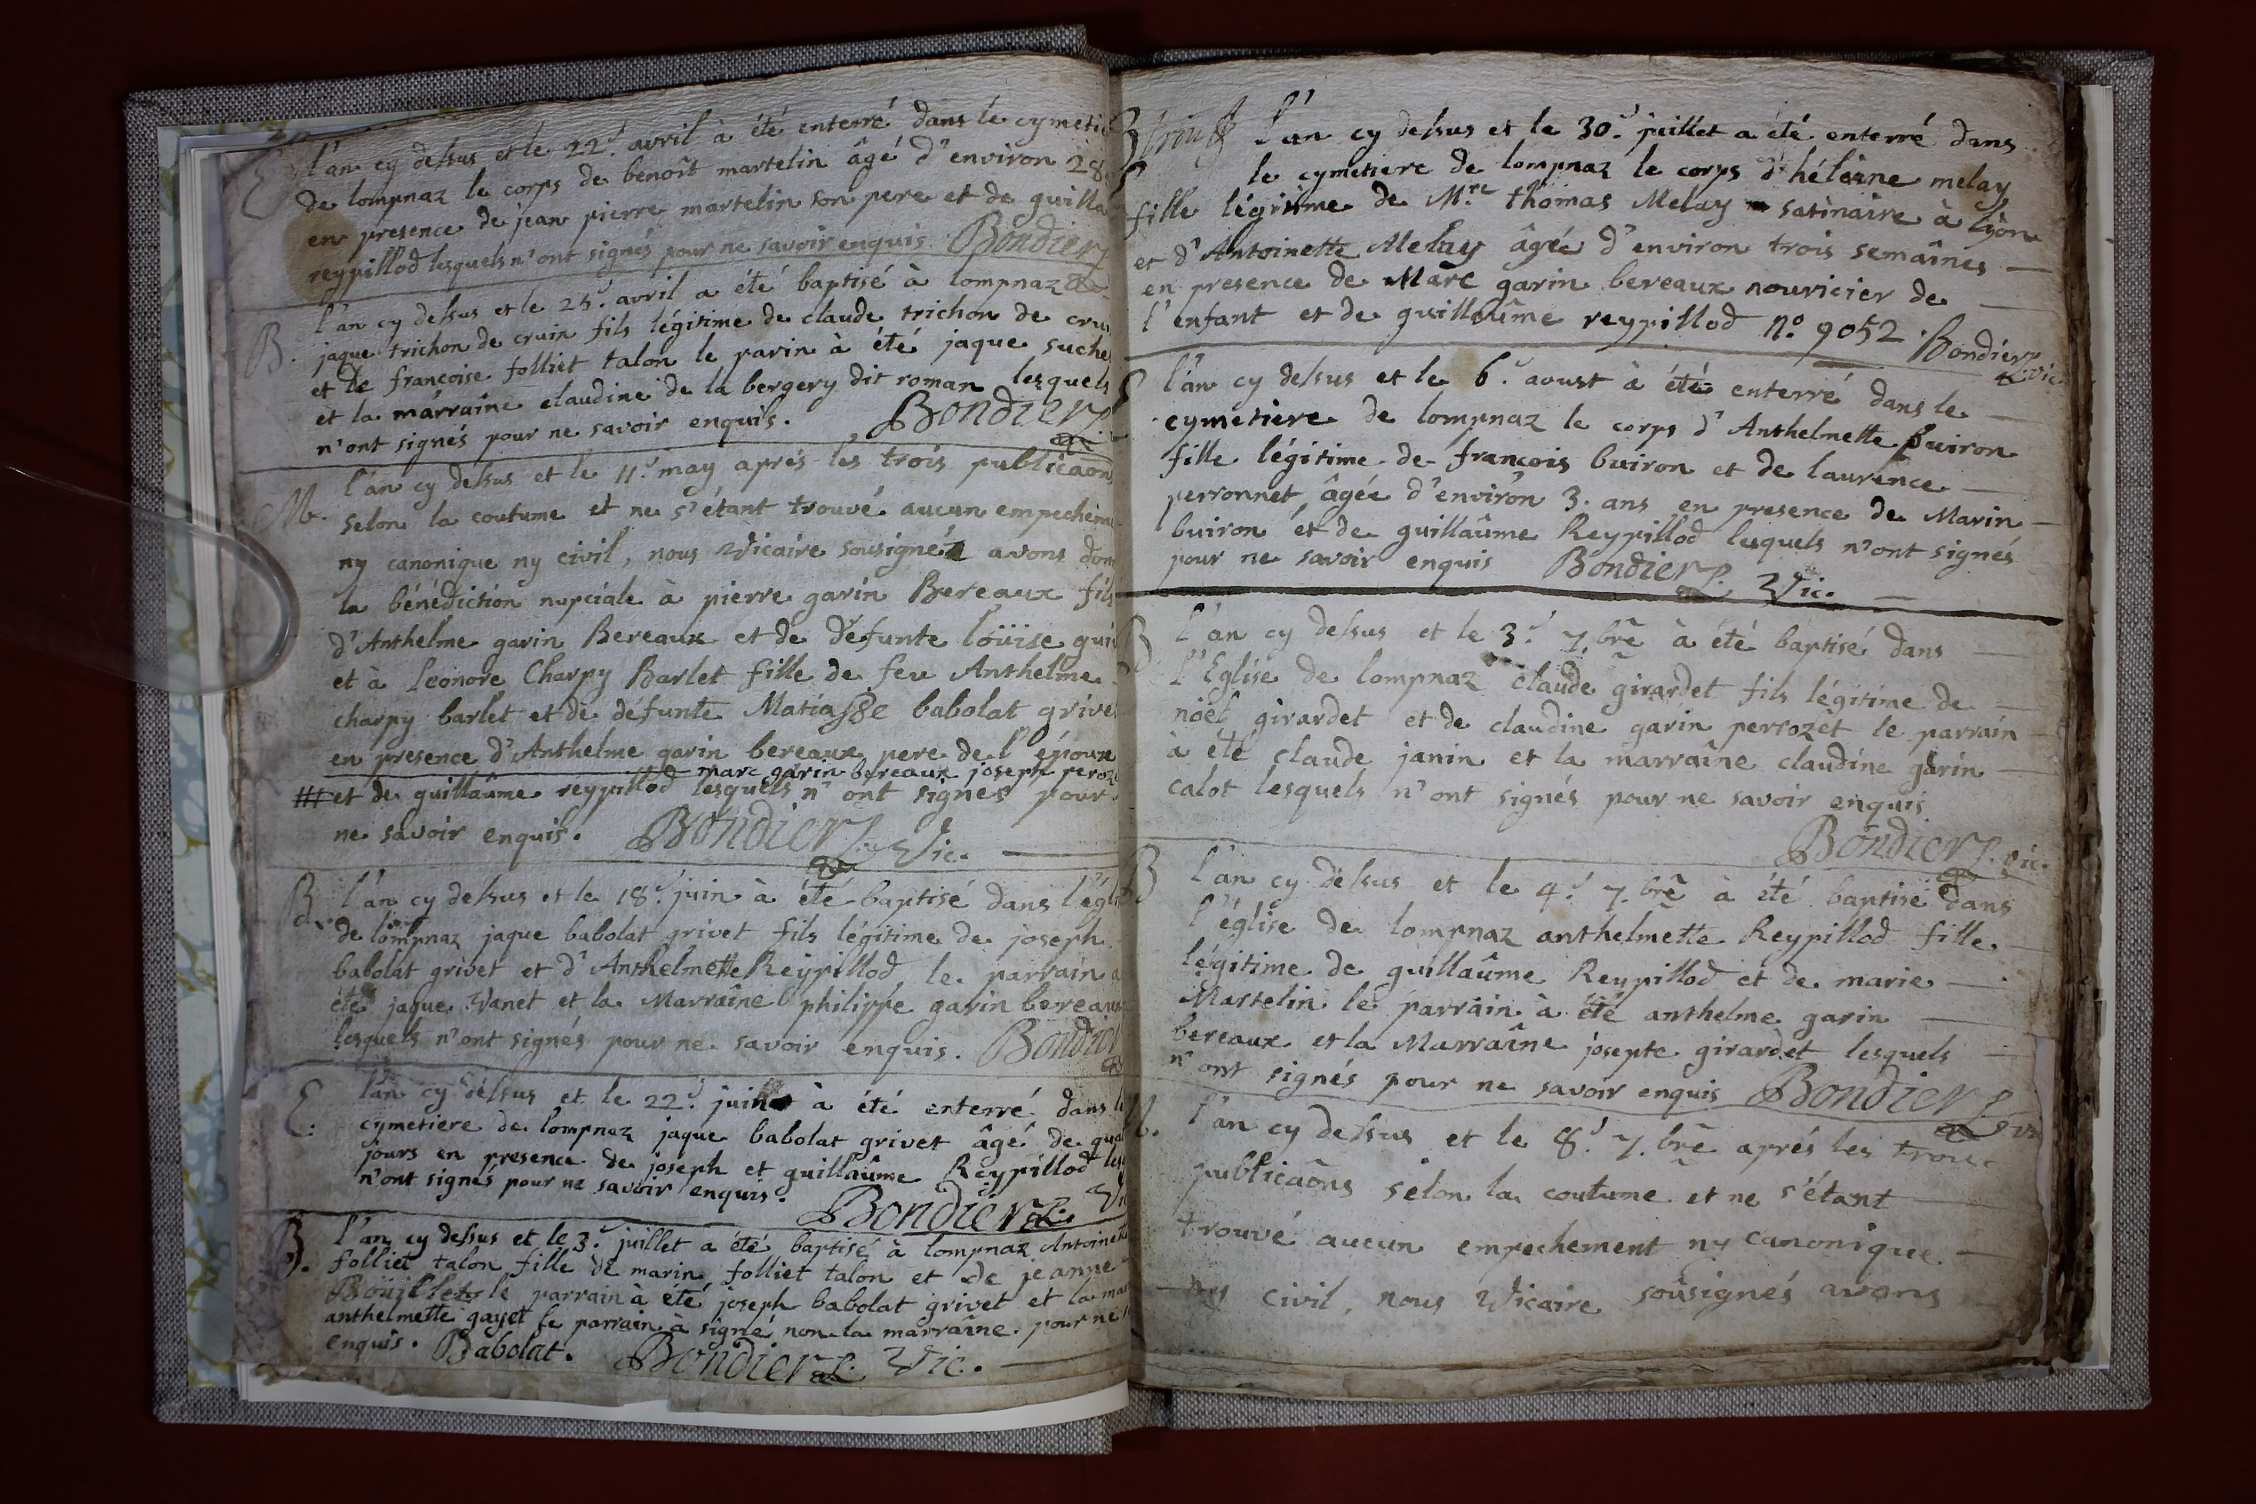 E l'an cy dessus et le 22.e avril à été enterré dans le cymetie
de lompnaz le corps de benoît martelin âgé d'environ 28
en presence de jean pierre martelin son pere et de guilla
reypillod lesquels n'ont signés pour ne savoir enquis. Bondier
B. l'an cy dessus et le avril a été baptisé à lompnaz
jaque trichon de cruin fils légitime de claude trichon de crui
et de francoise folliet talon le parin à été jaque suche
et la marraine claudine de la bergery dit roman lesquels
n'ont signés pour ne savoir enquis. Bondier
M. l'an cy dessus et le 11.e may aprés les trois publicaõn
selon la coutume et ne s'étant trouvé aucun empecheme
ny canonique ny civil, nous Vicaire sousigné avons don
la bénédiction nupciale à pierre garin Bereaux fils
d'Anthelme garin Bereaux et de défunte loüise gui
et à leonore Charpy Barlet fille de feu Anthelme
charpy barlet et de défunte Matiasse babolat grive
en presence d'Anthelme garin bereaux pere de l'époux
marc garin bereaux joseph peroz
et de guillaûme reypillod lesquels n'ont signés pour
ne savoir enquis. Bondier Vic.
B. l'an cy dessus et le 18.e juin à été baptisé dans l'égli
de lompnaz jaque babolat grivet fils légitime de joseph
babolat grivet et d'Anthelmette Reypillod le parrain a
été jaque Vanet et la Marraîne philippe garin bereaux
lesquels n'ont signés pour ne savoir enquis. Bondier
E. l'an cy dessus et le 22.e juin à été enterré dans le
cymetiere de lompnaz jaque babolat grivet âgé de qua
jours en presence de joseph et guillaûme Reypillod les
n'ont signés pour ne savoir enquis. Bondier Vi
B. l'an cy dessus et le 3.e juillet a été baptisé à lompnaz Antoinett
folliet talon fille de marin folliet talon et de jeanne
Boüillet le parrain à été joseph babolat grivet et la mar
anthelmette gayet le parrain à signé non la marraîne pour ne
enquis. Babolat. Bondier Vic.
l'an cy dessus et le 30.e juillet a été enterré dans
le cymetiere de lompnaz le corps d'héleine melay
fille légitime de M.re thomas Melay satinaire à lyon
et d'Antoinette Melay âgée d'environ trois semaînes
en presence de Marc garin bereaux nouricier de
l'enfant et de guillaûme reypillod n.o 9052. Bondier vic
E l'an cy dessus et le 6.e aoust à été enterré dans le
cymetiere de lompnaz le corps d'Anthelmette buiron
fille légitime de francois buiron et de laurence
perronnet âgée d'environ 3. ans en presence de Marin
buiron et de guillaûme Reypillod lesquels n'ont signés
pour ne savoir enquis Bondier Vic.
B l'an cy dessus et le 3.e 7.brê à été baptisé dans
l'Eglise de lompnaz claude girardet fils légitime de
noël girardet et de claudine garin perrozet le parrain
à été claude janin et la marraîne claudine garin
calot lesquels n'ont signés pour ne savoir enquis
Bondier vic.
B l'an cy dessus et le 4.e 7.brê à été baptisé dans
l'église de lompnaz anthelmette Reypillod fille
légitime de guillaûme Reypillod et de marie
Martelin le parrain à été anthelme garin
bereaux et la Marraîne josepte girardet lesquels
n'ont signés pour ne savoir enquis Bondier
M. l'an cy dessus et le 8.e 7.brê aprés les trois
publicaõns selon la coutume et ne s'étant
trouvé aucun empechement ny canonique
ny civil, nous Vicaire sousignés avons